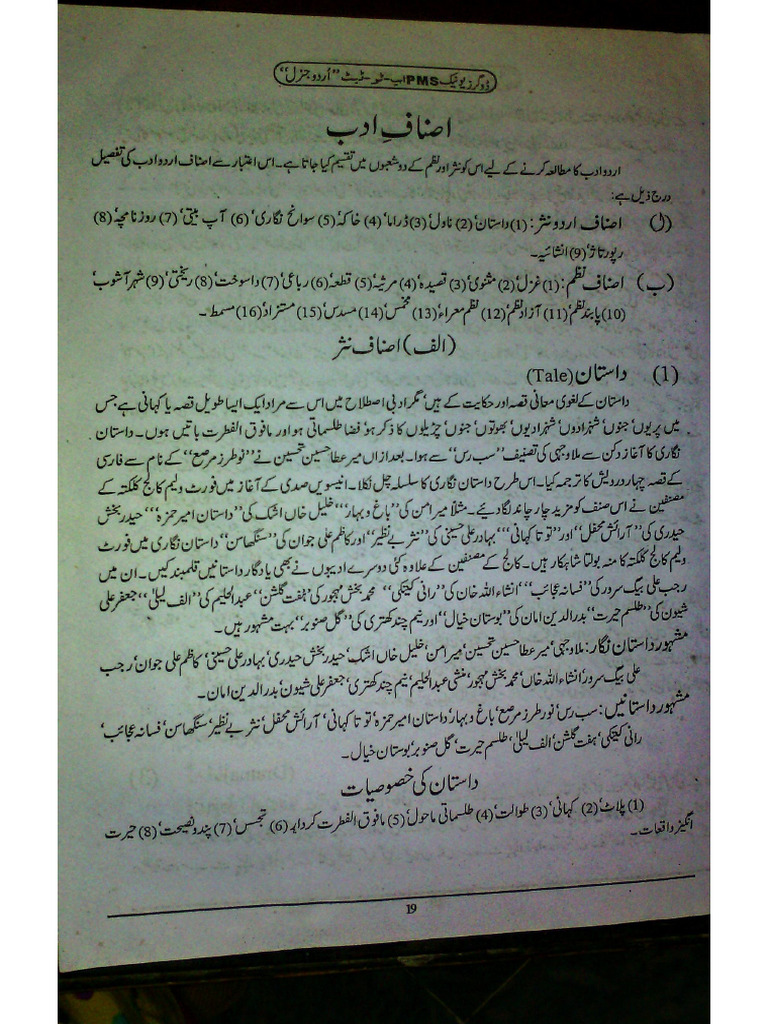 ڈوگرز یونیک PMS اپ-ٹو-ڈیٹ "اُردو جنرل"
اصنافِ ادب
اردو ادب کا مطالعہ کرنے کے لیے اس کو نثر اور نظم کے دو شعبوں میں تقسیم کیا جاتا ہے۔ اس اعتبار سے اصناف اردو ادب کی تفصیل
درج ذیل ہے:
(ل) اصناف اردو نثر: (1) داستان' (2) ناول' (3) ڈراما' (4) خاکہ' (5) سوانح نگاری' (6) آپ بیتی' (7) روزنامچہ' (8)
رپورتاژ' (9) انشائیہ۔
(ب) اصناف نظم: (1) غزل' (2) مثنوی' (3) قصیدہ' (4) مرثیہ' (5) قطعہ' (6) رباعی' (7) داسوخت' (8) ریختی' (9) شہر آشوب'
(10) پابند نظم' (11) آزاد نظم' (12) نظم معراء' (13) مخمس' (14) مسدس' (15) مستزاد' (16) مسمط۔
(الف) اصناف نثر
(1) داستان (Tale)
داستان کے لغوی معانی قصہ اور حکایت کے ہیں' مگر ادبی اصطلاح میں اس سے مراد ایک ایسا طویل قصہ یا کہانی ہے جس
میں پریوں' جنوں' شہزادوں' شہزادیوں' بھوتوں' جنوں' چڑیلوں کا ذکر ہو' فضا طلسماتی ہو اور مافوق الفطرت باتیں ہوں۔ داستان
نگاری کا آغاز دکن سے ملا وجہی کی تصنیف "سب رس" سے ہوا۔ بعد ازاں میر عطا حسین تحسین نے "نو طرز مرصع" کے نام سے فارسی
کے قصہ چہار درویش کا ترجمہ کیا۔ اس طرح داستان نگاری کا سلسلہ چل نکلا۔ انیسویں صدی کے آغاز میں فورٹ ولیم کالج کلکتہ کے
مصنفین نے اس صنف کو مزید چار چاند لگا دیئے۔ مثلاً میر امن کی "باغ و بہار"' خلیل خاں اشک کی "داستان امیر حمزہ"' حیدر بخش
حیدری کی "آرائش محفل" اور "توتا کہانی"' بہادر علی حسینی کی "نثر بے نظیر" اور کاظم علی جوان کی "سنگھاسن" داستان نگاری میں فورٹ
ولیم کالج کلکتہ کا منہ بولتا شاہکار ہیں۔ کالج کے مصنفین کے علاوہ کئی دوسرے ادیبوں نے بھی یادگار داستانیں قلمبند کیں۔ ان میں
رجب علی بیگ سرور کی "فسانہ عجائب"' انشاء اللہ خان کی "رانی کیتکی" محمد بخش مہجور کی "ہفت گلشن" عبدالحلیم کی "الف لیلیٰ"' جعفر علی
شیون کی "طلسم حیرت" بدر الدین امان کی "بوستان خیال" اور نیم چند کھتری کی "گل صنوبر" بہت مشہور ہیں۔
مشہور داستان نگار: ملا وجہی' میر عطا حسین تحسین' میر امن' خلیل خاں اشک' حیدر بخش حیدری' بہادر علی حسینی' کاظم علی جوان' رجب
علی بیگ سرور' انشاء اللہ خاں' محمد بخش مہجور' منشی عبدالحلیم' نیم چند کھتری' جعفر علی شیون' بدر الدین امان۔
مشہور داستانیں: سب رس' نو طرز مرصع' باغ و بہار' داستان امیر حمزہ' توتا کہانی' آرائش محفل' نثر بے نظیر' سنگھاسن' فسانہ عجائب'
رانی کیتکی' ہفت گلشن' الف لیلیٰ' طلسم حیرت' گل صنوبر' بوستان خیال۔
داستان کی خصوصیات
(1) پلاٹ' (2) کہانی' (3) طوالت' (4) طلسماتی ماحول' (5) مافوق الفطرت کردار' (6) تجسس' (7) پند و نصیحت' (8) حیرت
انگیز واقعات۔
19